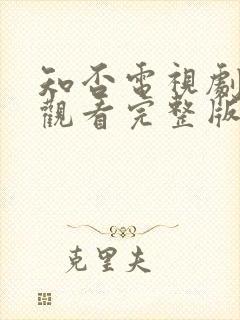 知否電視劇
觀看完整版
克里夫